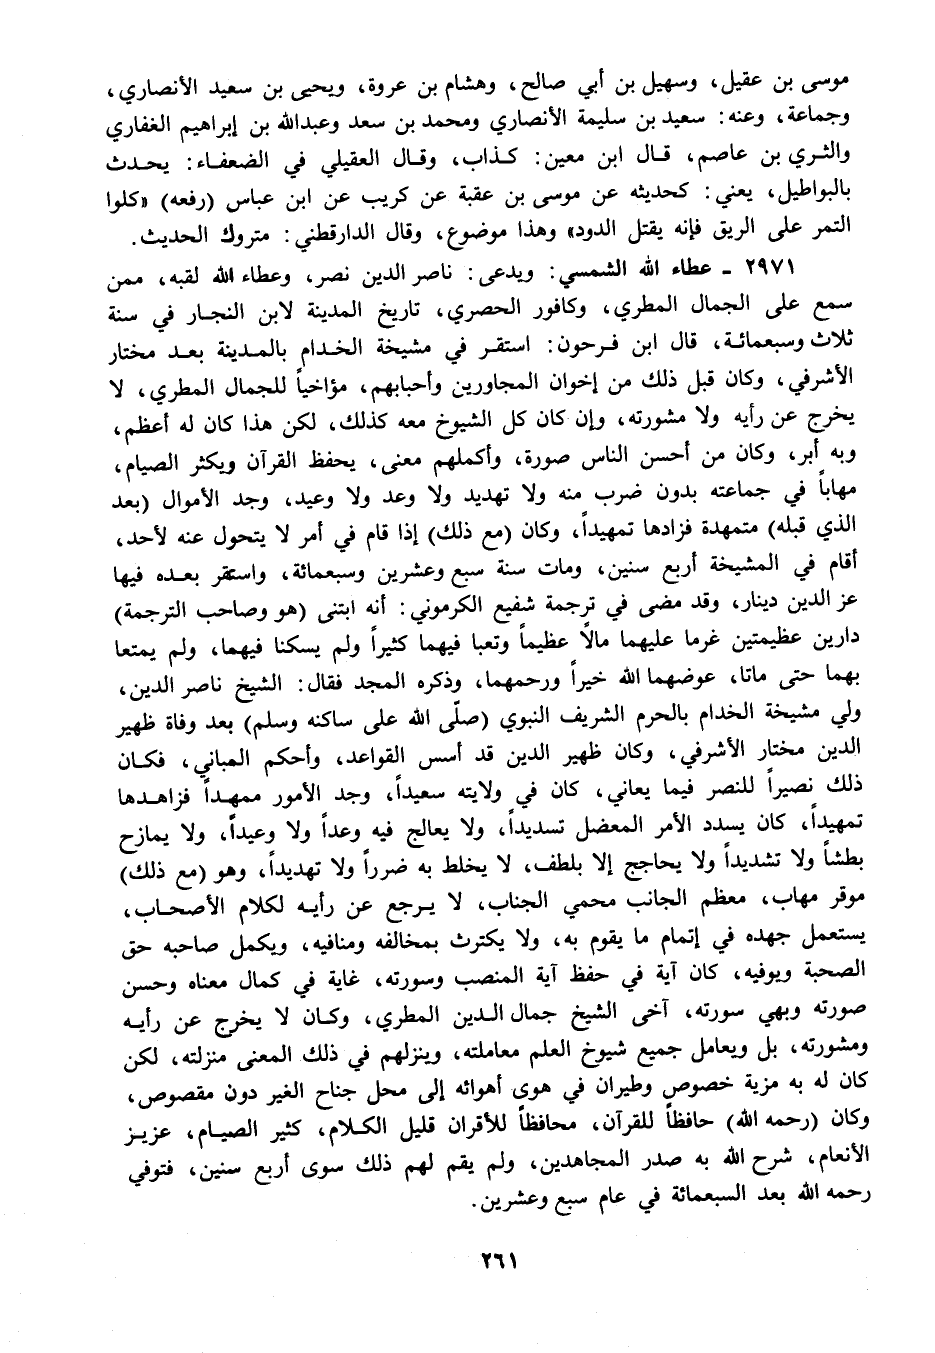 موسى بن عقيل، وسهيل بن أبي صالح، وهشام بن عروة، ويحيى بن سعيد الأنصاري،
وجماعة، وعنه: سعيد بن سليمة الأنصاري ومحمد بن سعد وعبدالله بن إبراهيم الغفاري
والثري بن عاصم، قال ابن معين: كذاب، وقال العقيلي في الضعفاء: يحدث
بالبواطيل، يعني: كحديثه عن موسى بن عقبة عن كريب عن ابن عباس (رفعه) «كلوا
التمر على الريق فإنه يقتل الدود» وهذا موضوع، وقال الدارقطني: متروك الحديث.
٢٩٧١ - عطاء الله الشمسي: ويدعى: ناصر الدين نصر، وعطاء الله لقبه، ممن
سمع على الجمال المطري، وكافور الحصري، تاريخ المدينة لابن النجار في سنة
ثلاث وسبعمائة، قال ابن فرحون: استقر في مشيخة الخدام بالمدينة بعد مختار
الأشرفي، وكان قبل ذلك من إخوان المجاورين وأحبابهم، مؤاخياً للجمال المطري، لا
يخرج عن رأيه ولا مشورته، وإن كان كل الشيوخ معه كذلك، لكن هذا كان له أعظم،
وبه أبر، وكان من أحسن الناس صورة، وأكملهم معنى، يحفظ القرآن ويكثر الصيام،
مهاباً في جماعته بدون ضرب منه ولا تهديد ولا وعد ولا وعيد، وجد الأموال (بعد
الذي قبله) متمهدة فزادها تمهيداً، وكان (مع ذلك) إذا قام في أمر لا يتحول عنه لأحد،
أقام في المشيخة أربع سنين، ومات سنة سبع وعشرين وسبعمائة، واستقر بعده فيها
عز الدين دينار، وقد مضى في ترجمة شفيع الكرموني: أنه ابتنى (هو وصاحب الترجمة)
دارين عظيمتين غرما عليهما مالاً عظيماً وتعبا فيهما كثيراً ولم يسكنا فيهما، ولم يمتعا
بهما حتى ماتا، عوضهما الله خيراً ورحمهما، وذكره المجد فقال: الشيخ ناصر الدين،
ولي مشيخة الخدام بالحرم الشريف النبوي (صلّى الله على ساكنه وسلم) بعد وفاة ظهير
الدين مختار الأشرفي، وكان ظهير الدين قد أسس القواعد، وأحكم المباني، فكان
ذلك نصيراً للنصر فيما يعاني، كان في ولايته سعيداً، وجد الأمور ممهداً فزاهدها
تمهيداً، كان يسدد الأمر المعضل تسديداً، ولا يعالج فيه وعداً ولا وعيداً، ولا يمازح
بطشاً ولا تشديداً ولا يحاجج إلا بلطف، لا يخلط به ضرراً ولا تهديداً، وهو (مع ذلك)
موقر مهاب، معظم الجانب محمي الجناب، لا يرجع عن رأيه لكلام الأصحاب،
يستعمل جهده في إتمام ما يقوم به، ولا يكترث بمخالفه ومنافيه، ويكمل صاحبه حق
الصحبة ويوفيه، كان آية في حفظ آية المنصب وسورته، غاية في كمال معناه وحسن
صورته وبهي سورته، آخى الشيخ جمال الدين المطري، وكان لا يخرج عن رأيه
ومشورته، بل ويعامل جميع شيوخ العلم معاملته، وينزلهم في ذلك المعنى منزلته، لكن
كان له به مزية خصوص وطيران في هوى أهوائه إلى محل جناح الغير دون مقصوص،
وكان (رحمه الله) حافظاً للقرآن، محافظاً للأقران قليل الكلام، كثير الصيام، عزيز
الأنعام، شرح الله به صدر المجاهدين، ولم يقم لهم ذلك سوى أربع سنين، فتوفي
رحمه الله بعد السبعمائة في عام سبع وعشرين.
٢٦١